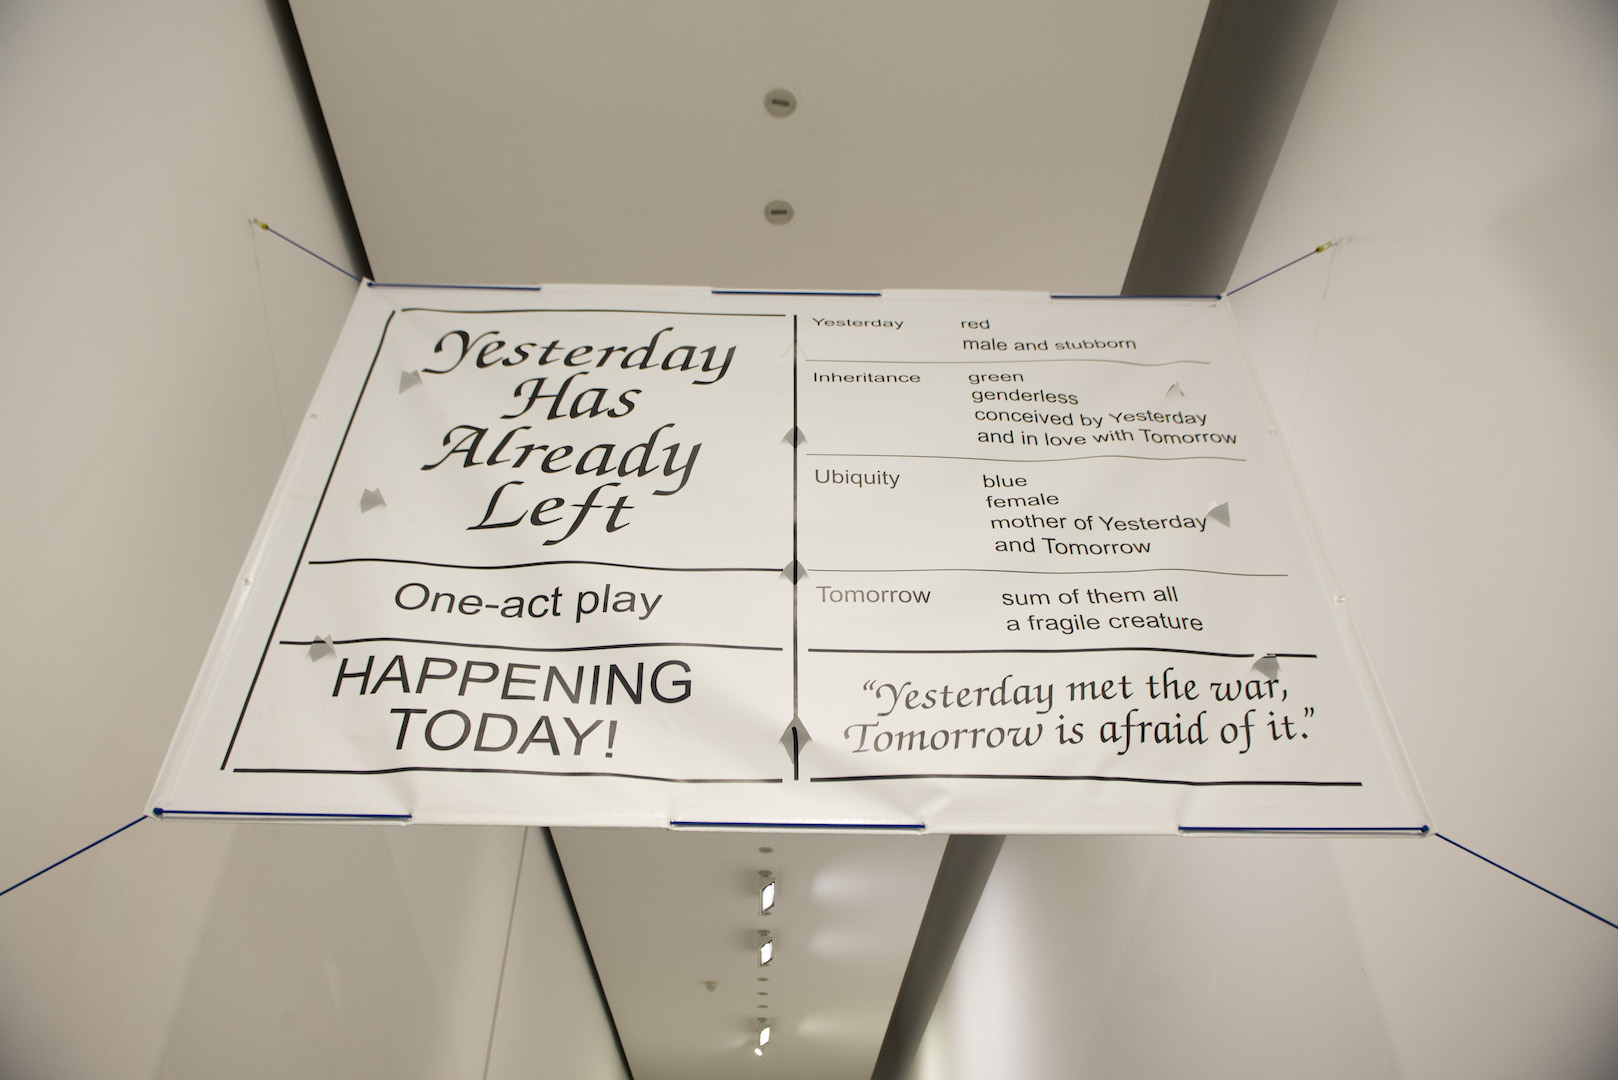 Yesterday
Has
Already
Left
One-act play
HAPPENING
TODAY!
Yesterday red
male and stubborn
Inheritance green
genderless
conceived by Yesterday
and in love with Tomorrow
Ubiquity blue
female
mother of Yesterday
and Tomorrow
Tomorrow sum of them all
a fragile creature
“Yesterday met the war,
Tomorrow is afraid of it.”